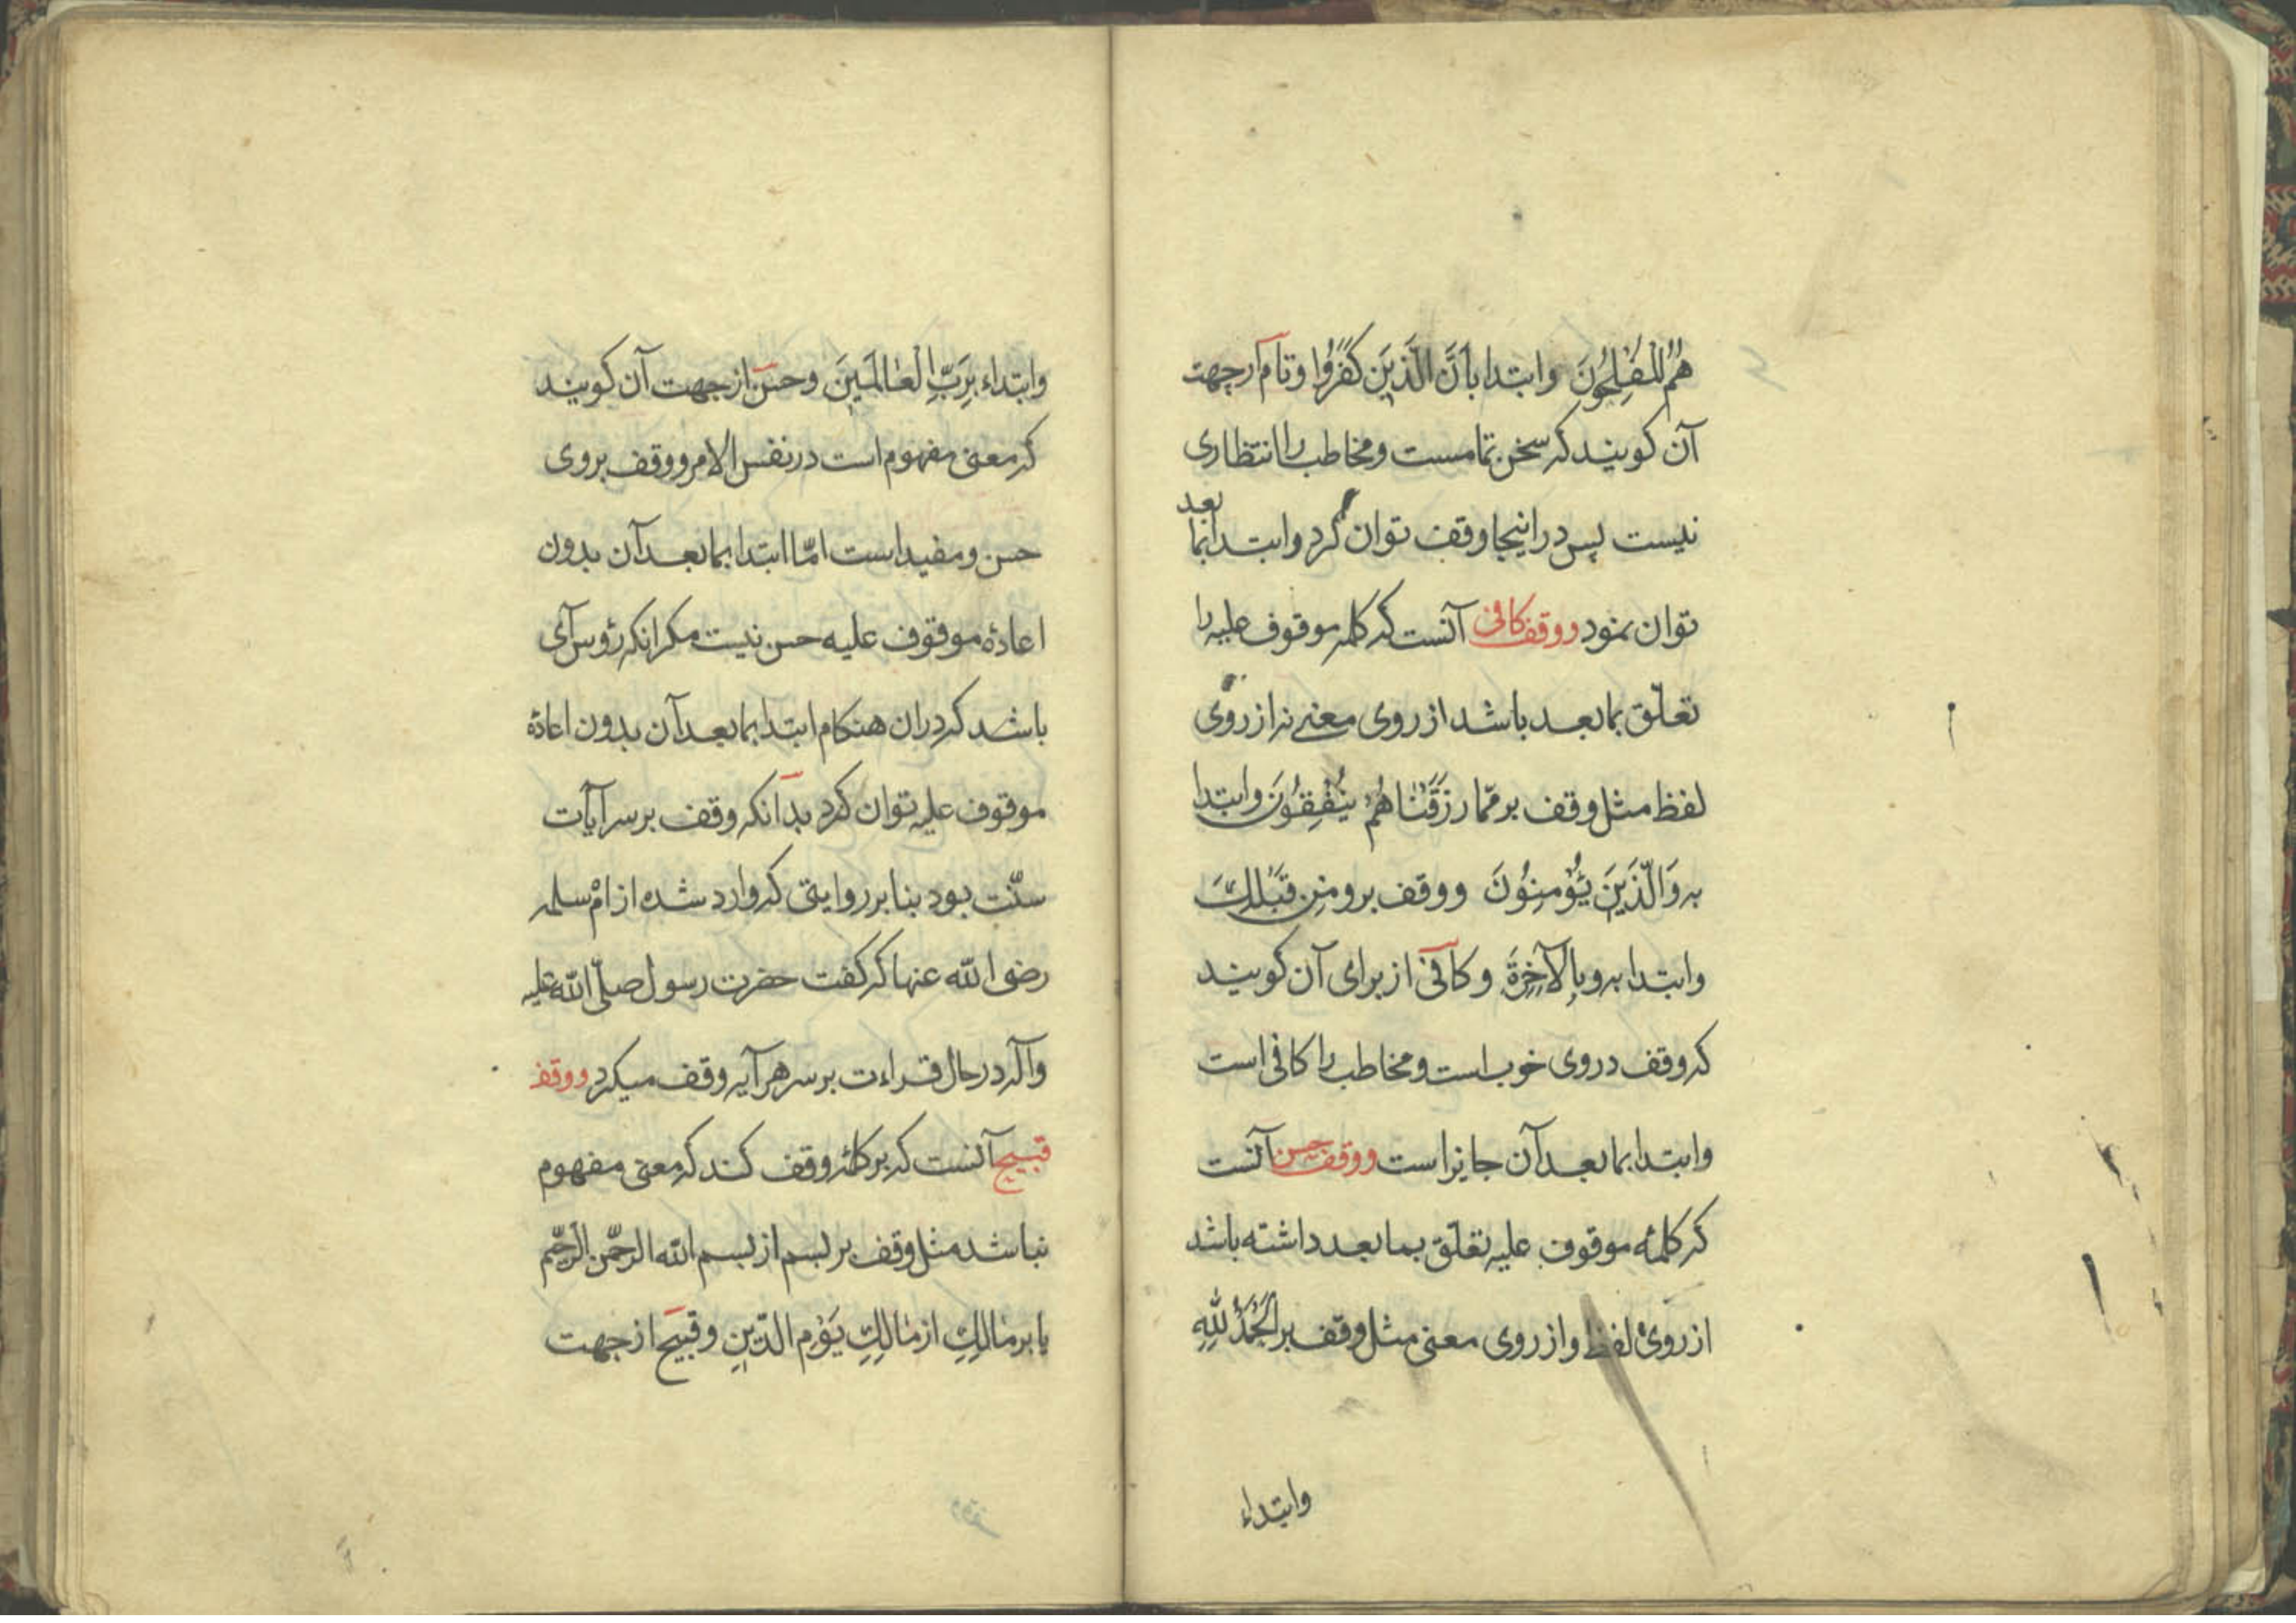 هُمُ الْمُفْلِحُونَ وابتدا باَنَّ الَّذینَ كَفَرُوا وتآم ازجهت
آن کویند که سخن تمامست ومخاطب را انتظاری
نیست پس دراینجا وقف توان کرد وابتدا بما بعد
توان نمود ووقف کافی آنست که کلمه موقوف علیه را
تعلّق بمابعد باشد ازروی معنی نه ازروی
لفظ مثل وقف بر ممّا رزَقْنٰاهُمْ یُنْفِقُونَ وابتدا
به وَالَّذینَ یُؤْمِنُونَ ووقف بر ومِن قَبْلِكَ
وابتدا به وبِالْآخِرَةِ وکافی ازبرای آن کویند
که وقف دروی خوب است ومخاطب را کافی است
وابتدا بمابعد آن جایز است ووقف حسن آنست
که کلمهٔ موقوف علیه تعلّق بمابعد داشته باشد
ازروی لفظ وازروی معنی مثل وقف بر الْحَمْدُ لِلّٰهِ
وابتداء
وابتداء بِرَبِّ الْعٰالَمینَ وحسن ازجهت آن کویند
که معنی مفهوم است درنفس الامر ووقف بروی
حسن ومفید است امّا ابتدا بمابعد آن بدون
اعادهٔ موقوف علیه حسن نیست مکر انکه رؤس آی
باشد که دران هنکام ابتدا بمابعد آن بدون اعادهٔ
موقوف علیه توان کرد بدانکه وقف برسر آیات
سنّت بود بنا برروایتی که وارد شده از امّ سلمه
رضی الله عنها که کفت حضرت رسول صلّی الله علیه
وآله درحال قراءت برسر هر آیه وقف میکرد ووقف
قبیح آنست که برکلمهٔ وقف کند که معنی مفهوم
نباشد مثل وقف بر بسم از بسم الله الرحمن الرحیم
یا بر مٰالِكِ از مٰالِكِ یَوْمِ الدّینِ وقبیح ازجهت